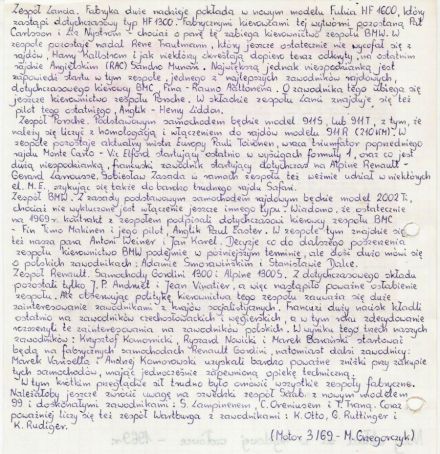 Zespół Lancia. Fabryka duże nadzieje pokłada w nowym modelu Fulvia HF 1600, który
zastąpi dotychczasowy typ HF 1300. Fabrycznymi kierowcami tej wytwórni pozostaną Pat
Carlsson i Liz Nystrom - chociaż o parę tę zabiega kierownictwo zespołu BMW. W
zespole pozostaje nadal Rene Trautmann, który jeszcze ostatecznie nie wycofał się z
rajdów, Harry Kallstrom i jak niektórzy określają dopiero teraz odkryty, na ostatnim
rajdzie Angielskim (RAC) Sandro Munari. Największą jednak niespodzianką jest
zapowiedź startu w tym zespole, jednego z najlepszych zawodników rajdowych,
dotychczasowego kierowcy BMC, Fina - Rauno Aaltonena. O zawodnika tego ubiega się
jeszcze kierownictwo zespołu Porsche. W składzie zespołu Lancii znajduje się też
pilot tego ostatniego, Anglik - Henry Liddon.
Zespół Porsche. Podstawowym samochodem będzie model 911S, lub 911T, z tym, że
należy się liczyć z homologacją i włączeniem do rajdów modelu 911R (210KM). W
zespole pozostaje aktualny mistrz Europy Pauli Toivonen, wraca triumfator poprzedniego
rajdu Monte Carlo - Vic Elford startujący ostatnio w wyścigach formuły 1, oraz co jest
dużą niespodzianką, francuski zawodnik startujący dotychczas na Alpine Renault -
Gerard Larrousse. Sobiesław Zasada w ramach zespołu też weźmie udział w niektórych
el. M.E. szykując się także do bardzo trudnego rajdu Safari.
Zespół BMW. Z zasady podstawowym samochodem rajdowym będzie model 2002 Ti,
chociaż nie wykluczone jest włączenie jeszcze innego typu. Wiadomo, że ostatecznie
na 1969 r. kontrakt z zespołem podpisali dotychczasowi kierowcy zespołu BMC
- Fin Timo Makinen i jego pilot, Anglik Paul Easter. W zespole tym znajdzie się
też nasza para Antoni Weiner i Jan Karel. Decyzje co do dalszego poszerzenia
zespołu kierownictwo BMW podejmie w późniejszym terminie, ale dość dużo mówi się
o polskich zawodnikach: Adamie Smorawińskim i Stanisławie Dalce.
Zespół Renault. Samochody Gordini 1300 i Alpine 1300S. Z dotychczasowego składu
pozostali tylko J.P. Andruet i Jean Vinatier, a więc nastąpiło poważne osłabienie
zespołu. Ale obserwując politykę kierownictwa tego zespołu zauważa się duże
zainteresowanie zawodnikami z krajów socjalistycznych. Francuzi duży nacisk kładli
ostatnio na zawodników czechosłowackich i węgierskich, a w tym roku zdecydowanie
rozszerzyli te zainteresowania na zawodników polskich. W wyniku tego trzech naszych
zawodników: Krzysztof Komornicki, Ryszard Nowicki i Marek Banański startować
będą na fabrycznych samochodach Renault Gordini, natomiast dalsi zawodnicy:
Marek Varisella i Andrzej Komorowski uzyskali bardzo poważne zniżki przy zakupie
tych samochodów, mając jednocześnie zapewnioną opiekę techniczną.
W tym krótkim przeglądzie sił trudno było omówić wszystkie zespoły fabryczne.
Należałoby jeszcze zwrócić uwagę na szwedzki zespół Saab z nowym modelem
99 i doskonałymi zawodnikami: S. Lampinenem, C. Oreniusem i T. Traną. Coraz
poważniej liczy się też zespół Wartburga z zawodnikami: K. Otto, G. Ruttinger i
K. Rudiger.
(Motor 3/69 - M. Grzegorczyk)